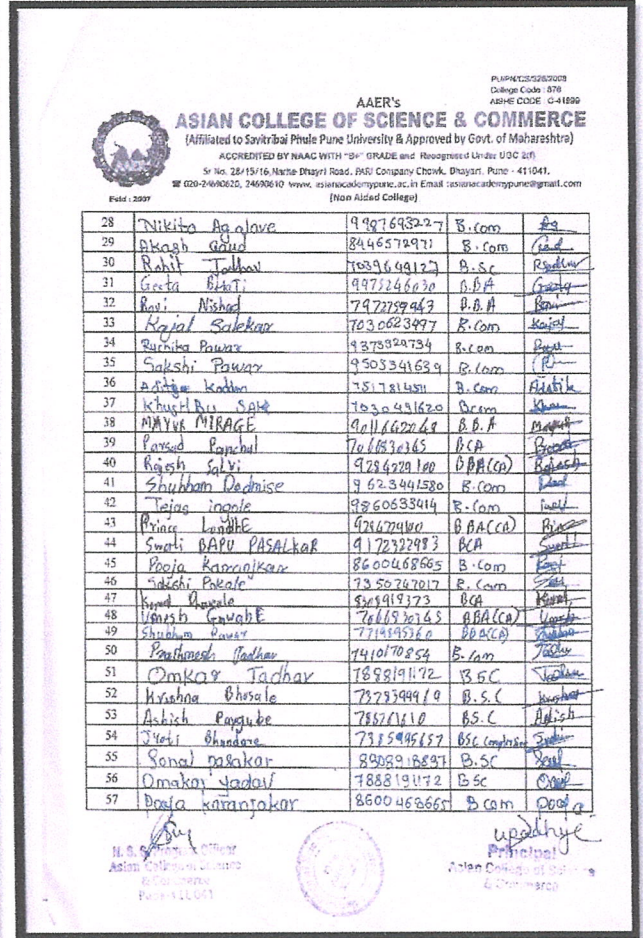 PU/PN/CS/326/2008
College Code : 878
AISHE CODE : C-41899
AAER's
ASIAN COLLEGE OF SCIENCE & COMMERCE
(Affiliated to Savitribai Phule Pune University & Approved by Govt. of Maharashtra)
ACCREDITED BY NAAC WITH "B+" GRADE and Recognised Under UGC 2(f)
Sr No. 28/15/16, Narhe Dhayri Road, PARI Company Chowk, Dhayari, Pune - 411041.
☎ 020-24690620, 24690610 www. asianacademypune.ac.in Email :asianacademypune@gmail.com
Estd : 2007 (Non Aided College)
28 Nikita Agalave 9987693227 B.com Ag
29 Akash Goud 8446572971 B.com
30 Rohit Jadhav 7039649127 B.Sc
31 Geeta BhaTi 9975246030 B.BA Geeta
32 Ravi Nishad 7972759943 B.B.A Ravi
33 Kajal Salekar 7030623497 B.Com Kajal
34 Ruchika Pawar 9373929734 B.com
35 Sakshi Pawar 9503341639 B.Com
36 Aditya Kadam B.Com
37 KhushBu SAH 7030491620 Bcom
38 MAYUR MIRAGE B.B.A
39 Parsad Panchal 7066830365 BCA
40 Rajesh Salvi 9284229100 BBA(CA) Rajesh
41 Shubham Dodmise 9623441580 B.Com
42 Tejas ingole 9860633414 B.Com
43 Prince LondHE BBA(CA)
44 Swati BAPU PASALKAR 9172322983 BCA
45 Pooja Karanjkar 8600468665 B.Com
46 Sakshi Pokale 7350267017 B.Com
47 8308918373 BCA
48 Umesh GawabE 7066830365 BBA(CA) Umesh
49 Shubham Pawar 7719895360 BBA(CA)
50 Prathmesh Jadhav 7410170854 B.Com
51 Omkar Jadhav 7888191172 BSC
52 Krishna Bhosale 7378399969 B.S.C
53 Ashish Paygube BS.C Ashish
54 Jyoti Bhandare 7385995657 BSC
55 Sonal pasakar 8808918897 B.SC
56 Omakar yadav 7888191172 BSC
57 Pooja karanjakar 8600468665 Bcom pooja
upadhye
N. S. S. Program Officer
Asian College of Science
& Commerce
Pune-411 041
Principal
Asian College of Science
& Commerce